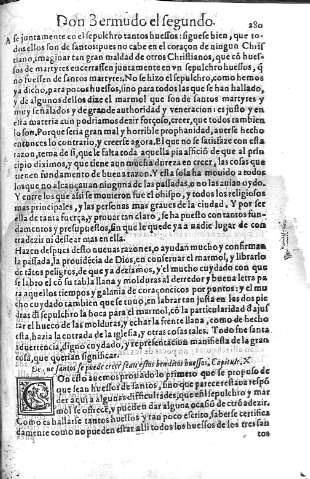 Don Bermudo el segundo. 280
A se juntamente en el sepulchro tantos huessos: siguese bien, que to-
dos ellos son de santos: pues no cabe en el coraçon de ningun Chris
tiano, imaginar tan gran maldad de otros Christianos, que cō huesos
de martyres encerrassen juntamente en vn sepulchro huessos, q̃
no fuessen de santos martyres. No se hizo el sepulchro, como hemos
ya dicho, para pocos huessos, sino para todos los que se han hallado,
y de algunos dellos dize el marmol que son de santos martyres y
muy señalados y de grande authoridad y veneracion: es justo y en
esta materia aun podriamos dezir forçoso, creer, que todos tambien
lo son. Porque seria gran mal y horrible prophanidad, auerse hecho
entonces lo contrario, y creerse agora. El que no se satisfaze con esta
razon, tema de si, que le falta toda aquella pia aficiō de que al prin
cipio diximos, y que tiene aun mucha dureza en creer, las cosas que
tienen fundamento de buena razon. Y esta sola ha mouido a todos
los que no alcançauan ninguna de las passadas, o no las auian oydo.
Y entre los que assi se mouieron fue el obispo, y todos los religiosos
mas principales, y las personas mas graues de la ciudad. Y por ser
ella de tanta fuerça, y prouar tan claro, se ha puesto con tantos fun-
damentos y presupuestos, sin que le quede ya a nadie lugar de con
tradezir ni dessear mas en ella.
Hazen despues desto nueuas razones, o ayudan mucho y confirman
la passada, la prouidēcia de Dios, en conseruar el marmol, y librarlo
de tātos peligros, de que ya deziamos, y el mucho cuydado con que
se labro el cō su tabla llana y molduras al derredor y buena letra pa
ra aquellos tiempos y galania de coraçoncicos por puntos: y el mu
cho cuydado tambien que se tuuo, en labrar tan justa en las dos pie
dras del sepulchro la boca para el marmol, cō la particularidad d ajus
tar el hueco de las molduras, y echar la frente llana, como de hecho
esta, hazia la entrada de la iglesia, y otras cosas tales. Todo fue santa
aduertencia, digno cuydado, y representacion manifiesta de la gran
cosa, que querian significar.
Capitu. X
CON esto hemos prouado lo primero que se propuso de
que sean huessos de santos, sino que parece restaua respō
der aqui a algunas difficultades, que en el sepulchro y mar
mol se ofrece, y pueden dar alguna ocasiō de cōtradezir.
Como es hallarse tantos huessos y tan poco escrito, saberse certifica
damente como no pueden estar alli todos los huessos de los tres san
tos